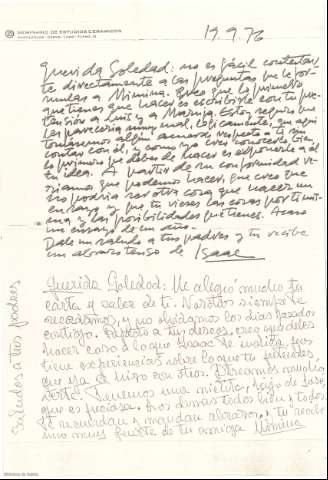 SEMINARIO DE ESTUDIOS CERAMICOS
19.9.76
Querida Soledad: no es fácil contestar
te directamente a las preguntas que le for-
mulas a Mimina. Creo que lo primero
que tienes que hacer es escribirle con tu pre-
tensión a Luis y a Maruja. Estoy seguro que
les parecería muy mal, lógicamente, que aquí
tomásemos algún acuerdo respecto a ti sin
contar con él, y como yo creo conocerle bien,
lo primero que debes de hacer es exponerle a él
tu idea. A partir de su conformidad ve-
riamos que podemos hacer, que creo que
no podría ser otra cosa que hacer un
ensayo y que tu vieses las cosas por ti mis-
ma y las posibilidades que tienes. Acaso
un ensayo de un año.
Dale un saludo a tus padres y tu recibe
un abrazo tenso de Isaac
Querida Soledad: Me alegró mucho tu
carta y saber de ti. Nosotros siempre te
recordamos, y no olvidamos los días pasados
contigo. Respecto a tus deseos, creo que debes
hacer caso a lo que Isaac te indica, pues
tiene experiencias sobre lo que tu pretendes,
que ya se hizo con otros. Deseamos mucho
verte. Tenemos una nietita, hija de José,
que es preciosa. Los demás todos bien y todos
te recuerdan y mandan abrazos, y tu recibe
uno muy fuerte de tu amiga Mimina
Saludos a tus padres